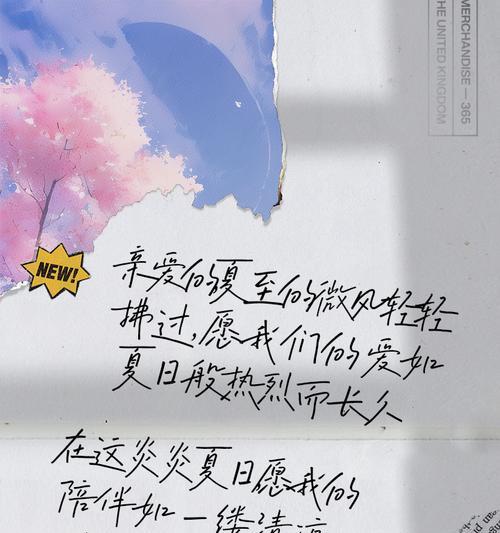 MERCHANDISE — 365
THE UNITED KINGDOM
NEW!
亲爱的夏至的微风轻轻
拂过,愿我们的爱如
夏日般热烈而长久
在这炎炎夏日愿我的
陪伴如一缕清凉